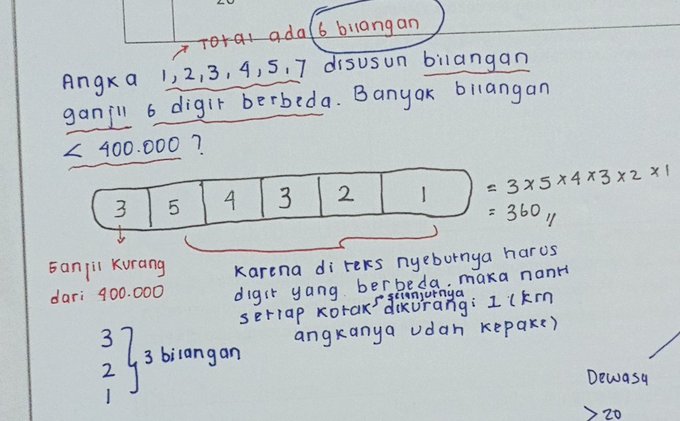 Total ada 6 bilangan
Angka 1,2,3,4,5,7 disusun bilangan
ganjil 6 digit berbeda. Banyak bilangan
< 400.000 ?
3 5 4 3 2 1 = 3 x 5 x 4 x 3 x 2 x 1
= 360 //
Ganjil kurang
dari 400.000
Karena di teks nyebutnya harus
digit yang berbeda, maka nanti
setiap kotak selanjutnya dikurangi 1 (krn
angkanya udah kepake)
3
2 } 3 bilangan
1
Dewasa
> 20